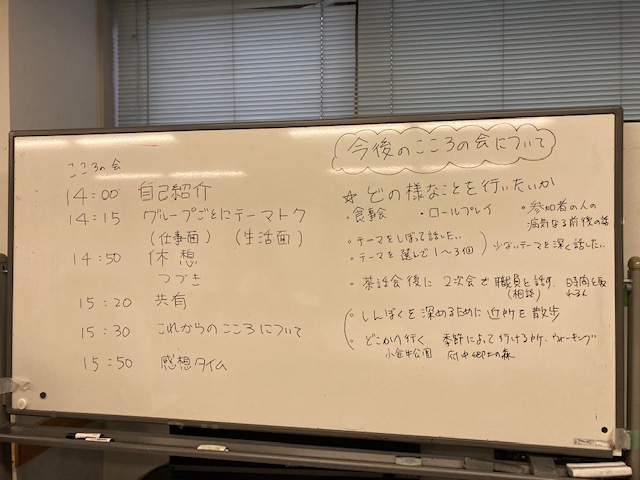 こころの会
14:00 自己紹介
14:15 グループごとにテーマトク
(仕事面) (生活面)
14:50 休想
つづき
15:20 共有
15:30 これからのこころについて
15:50 感想タイム
今後のこころの会について
☆ どの様なことを行いたいか
・食事会 ・ロールプレイ ・参加者の人の
病気なる前後の話
・テーマをしぼって話したい
・テーマを選んで1〜3個 ) 少ないテーマを深く話したい
・茶話会後に2次会で職員と話す。時間を取
(相談) れるん
・しんぼくを深めるために近所を散歩
・どこかへ行く 季節によって行ける所、ウォーキング
小金井公園 府中郷土の森